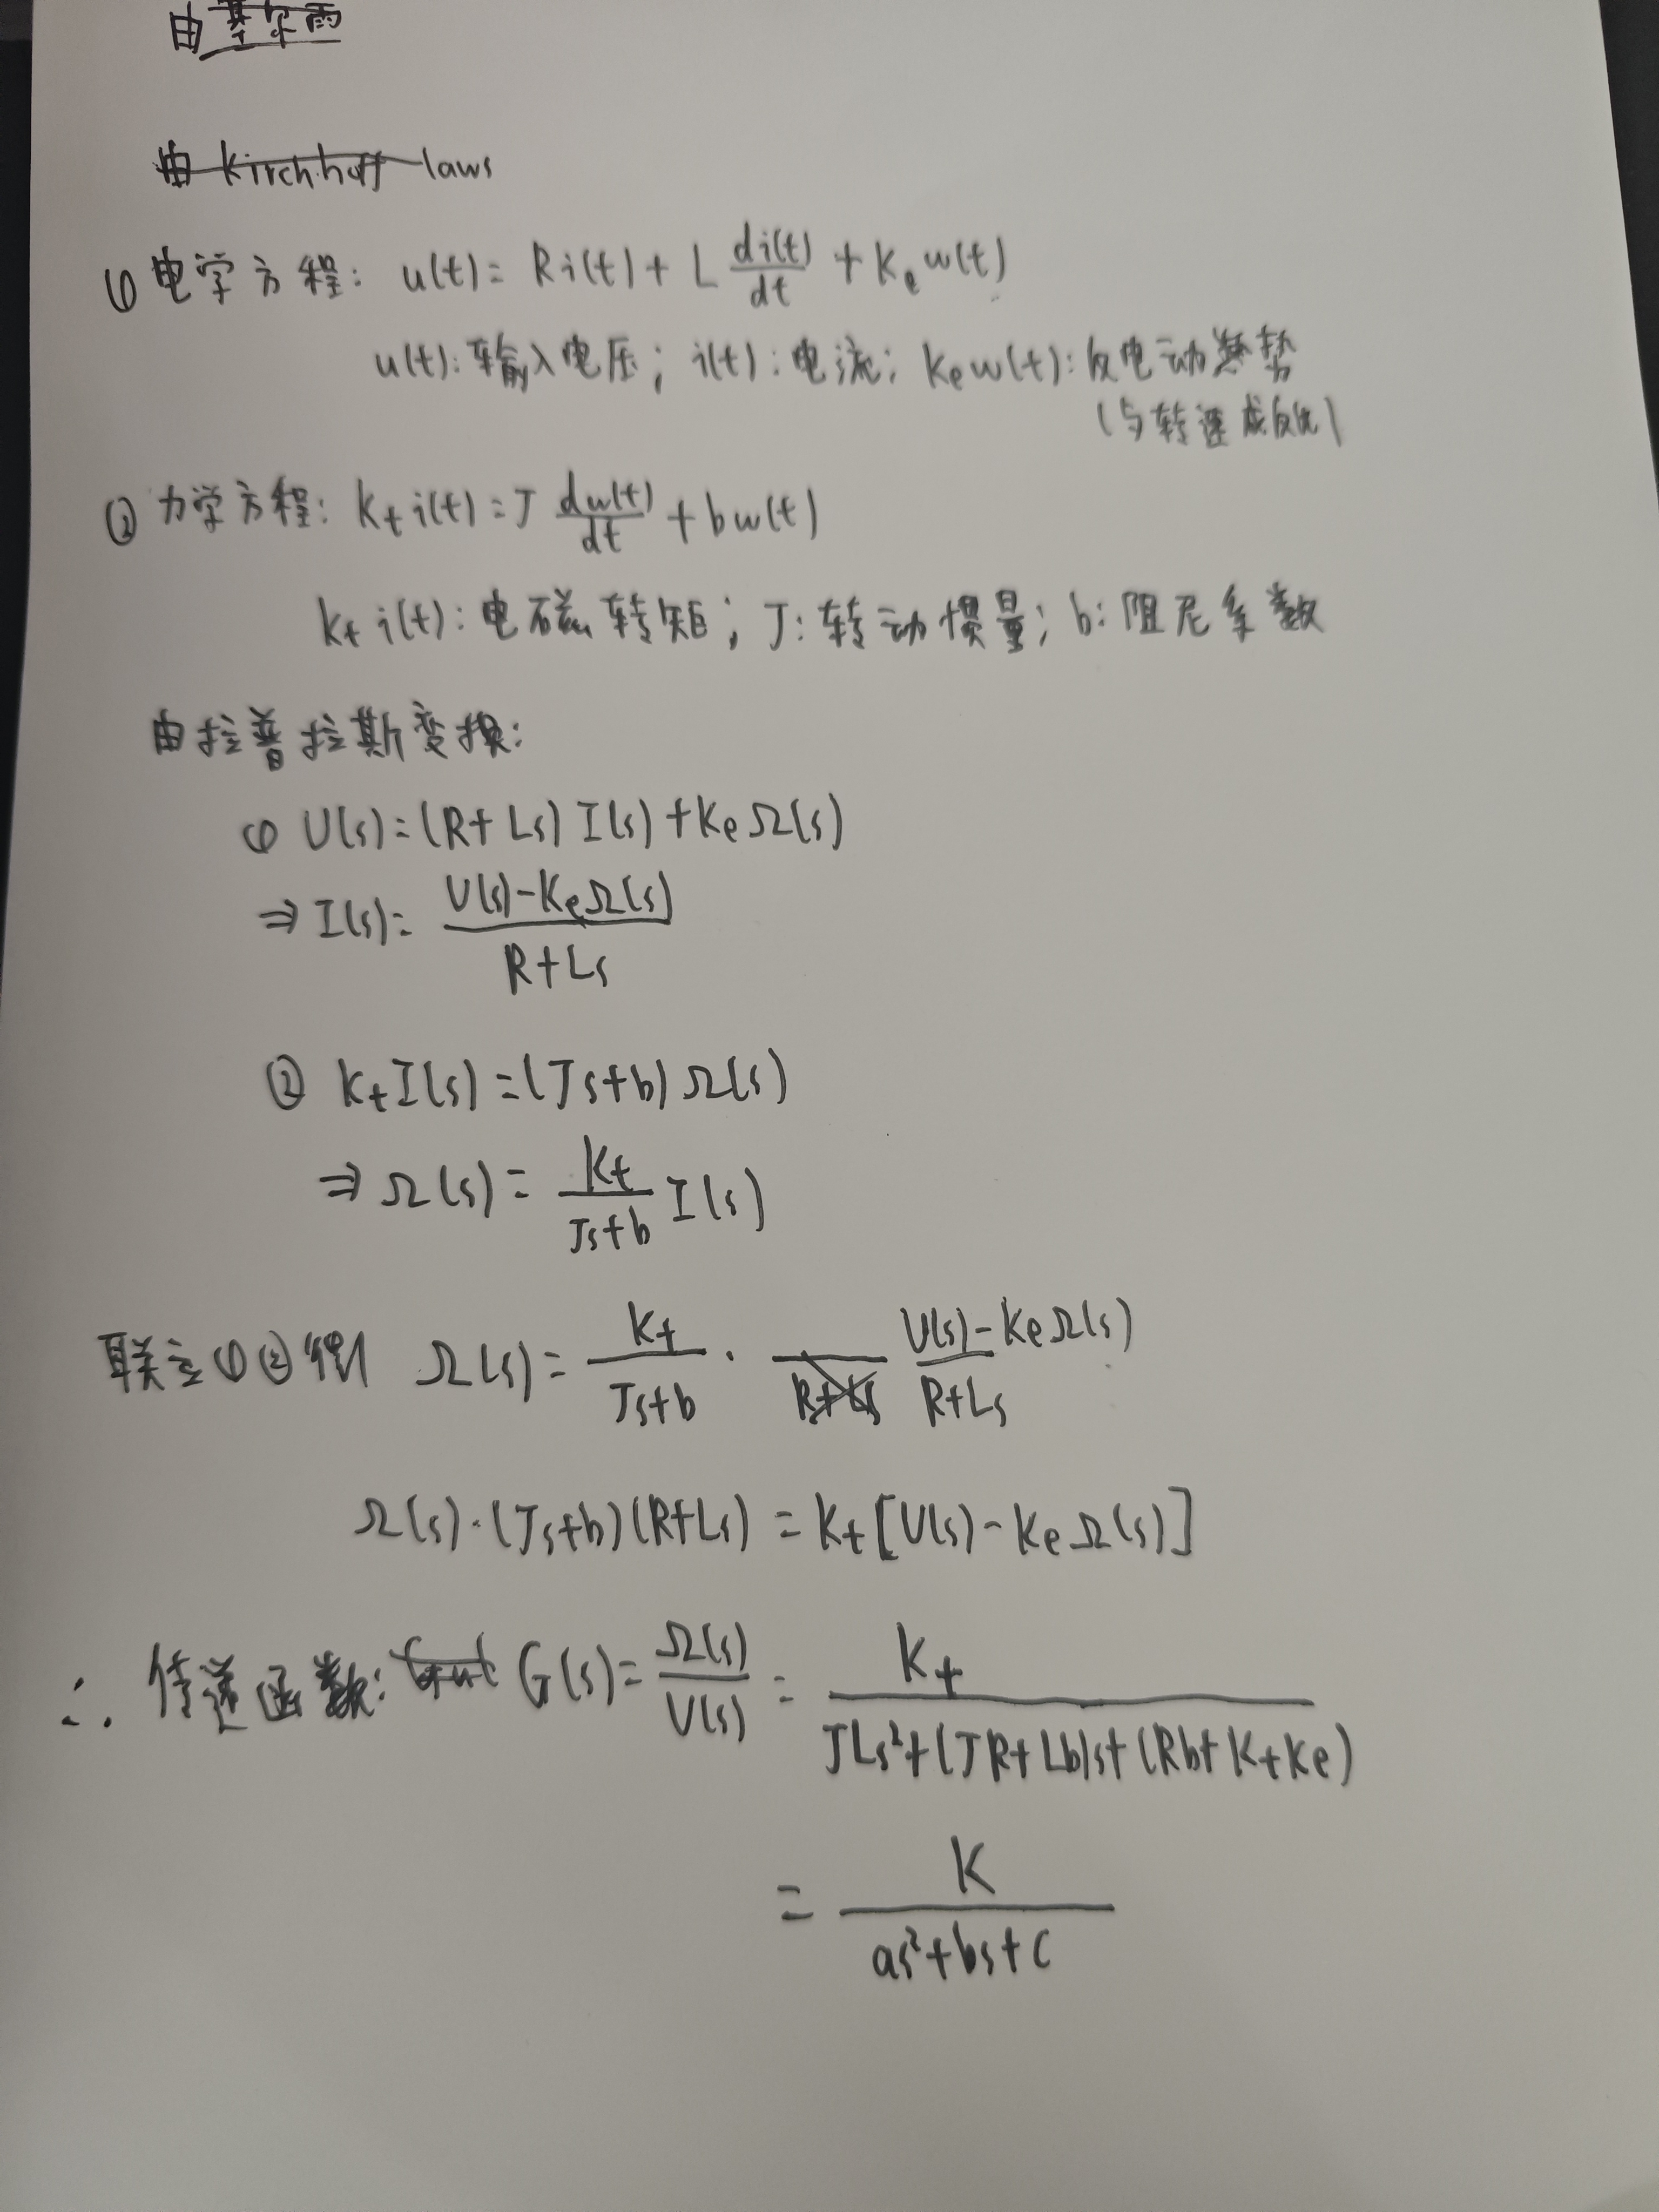 由
由 Kirchhoff laws
① 电学方程: u(t) = Ri(t) + L di(t)/dt + Ke w(t)
u(t): 输入电压; i(t): 电流; Ke w(t): 反电动势
(与转速成反比)
② 力学方程: Kt i(t) = J dw(t)/dt + bw(t)
Kt i(t): 电磁转矩; J: 转动惯量; b: 阻尼系数
由拉普拉斯变换:
① U(s) = (R+Ls) I(s) + Ke Ω(s)
⇒ I(s) = U(s)-KeΩ(s) / R+Ls
② Kt I(s) = (Js+b) Ω(s)
⇒ Ω(s) = Kt / Js+b I(s)
联立①②得 Ω(s) = Kt / Js+b · U(s)-KeΩ(s) / R+Ls
Ω(s)·(Js+b)(R+Ls) = Kt[U(s)-KeΩ(s)]
∴ 传递函数: G(s) = Ω(s)/U(s) = Kt / JLs²+(JR+Lb)s+(Rb+KtKe)
= K / as²+bs+c